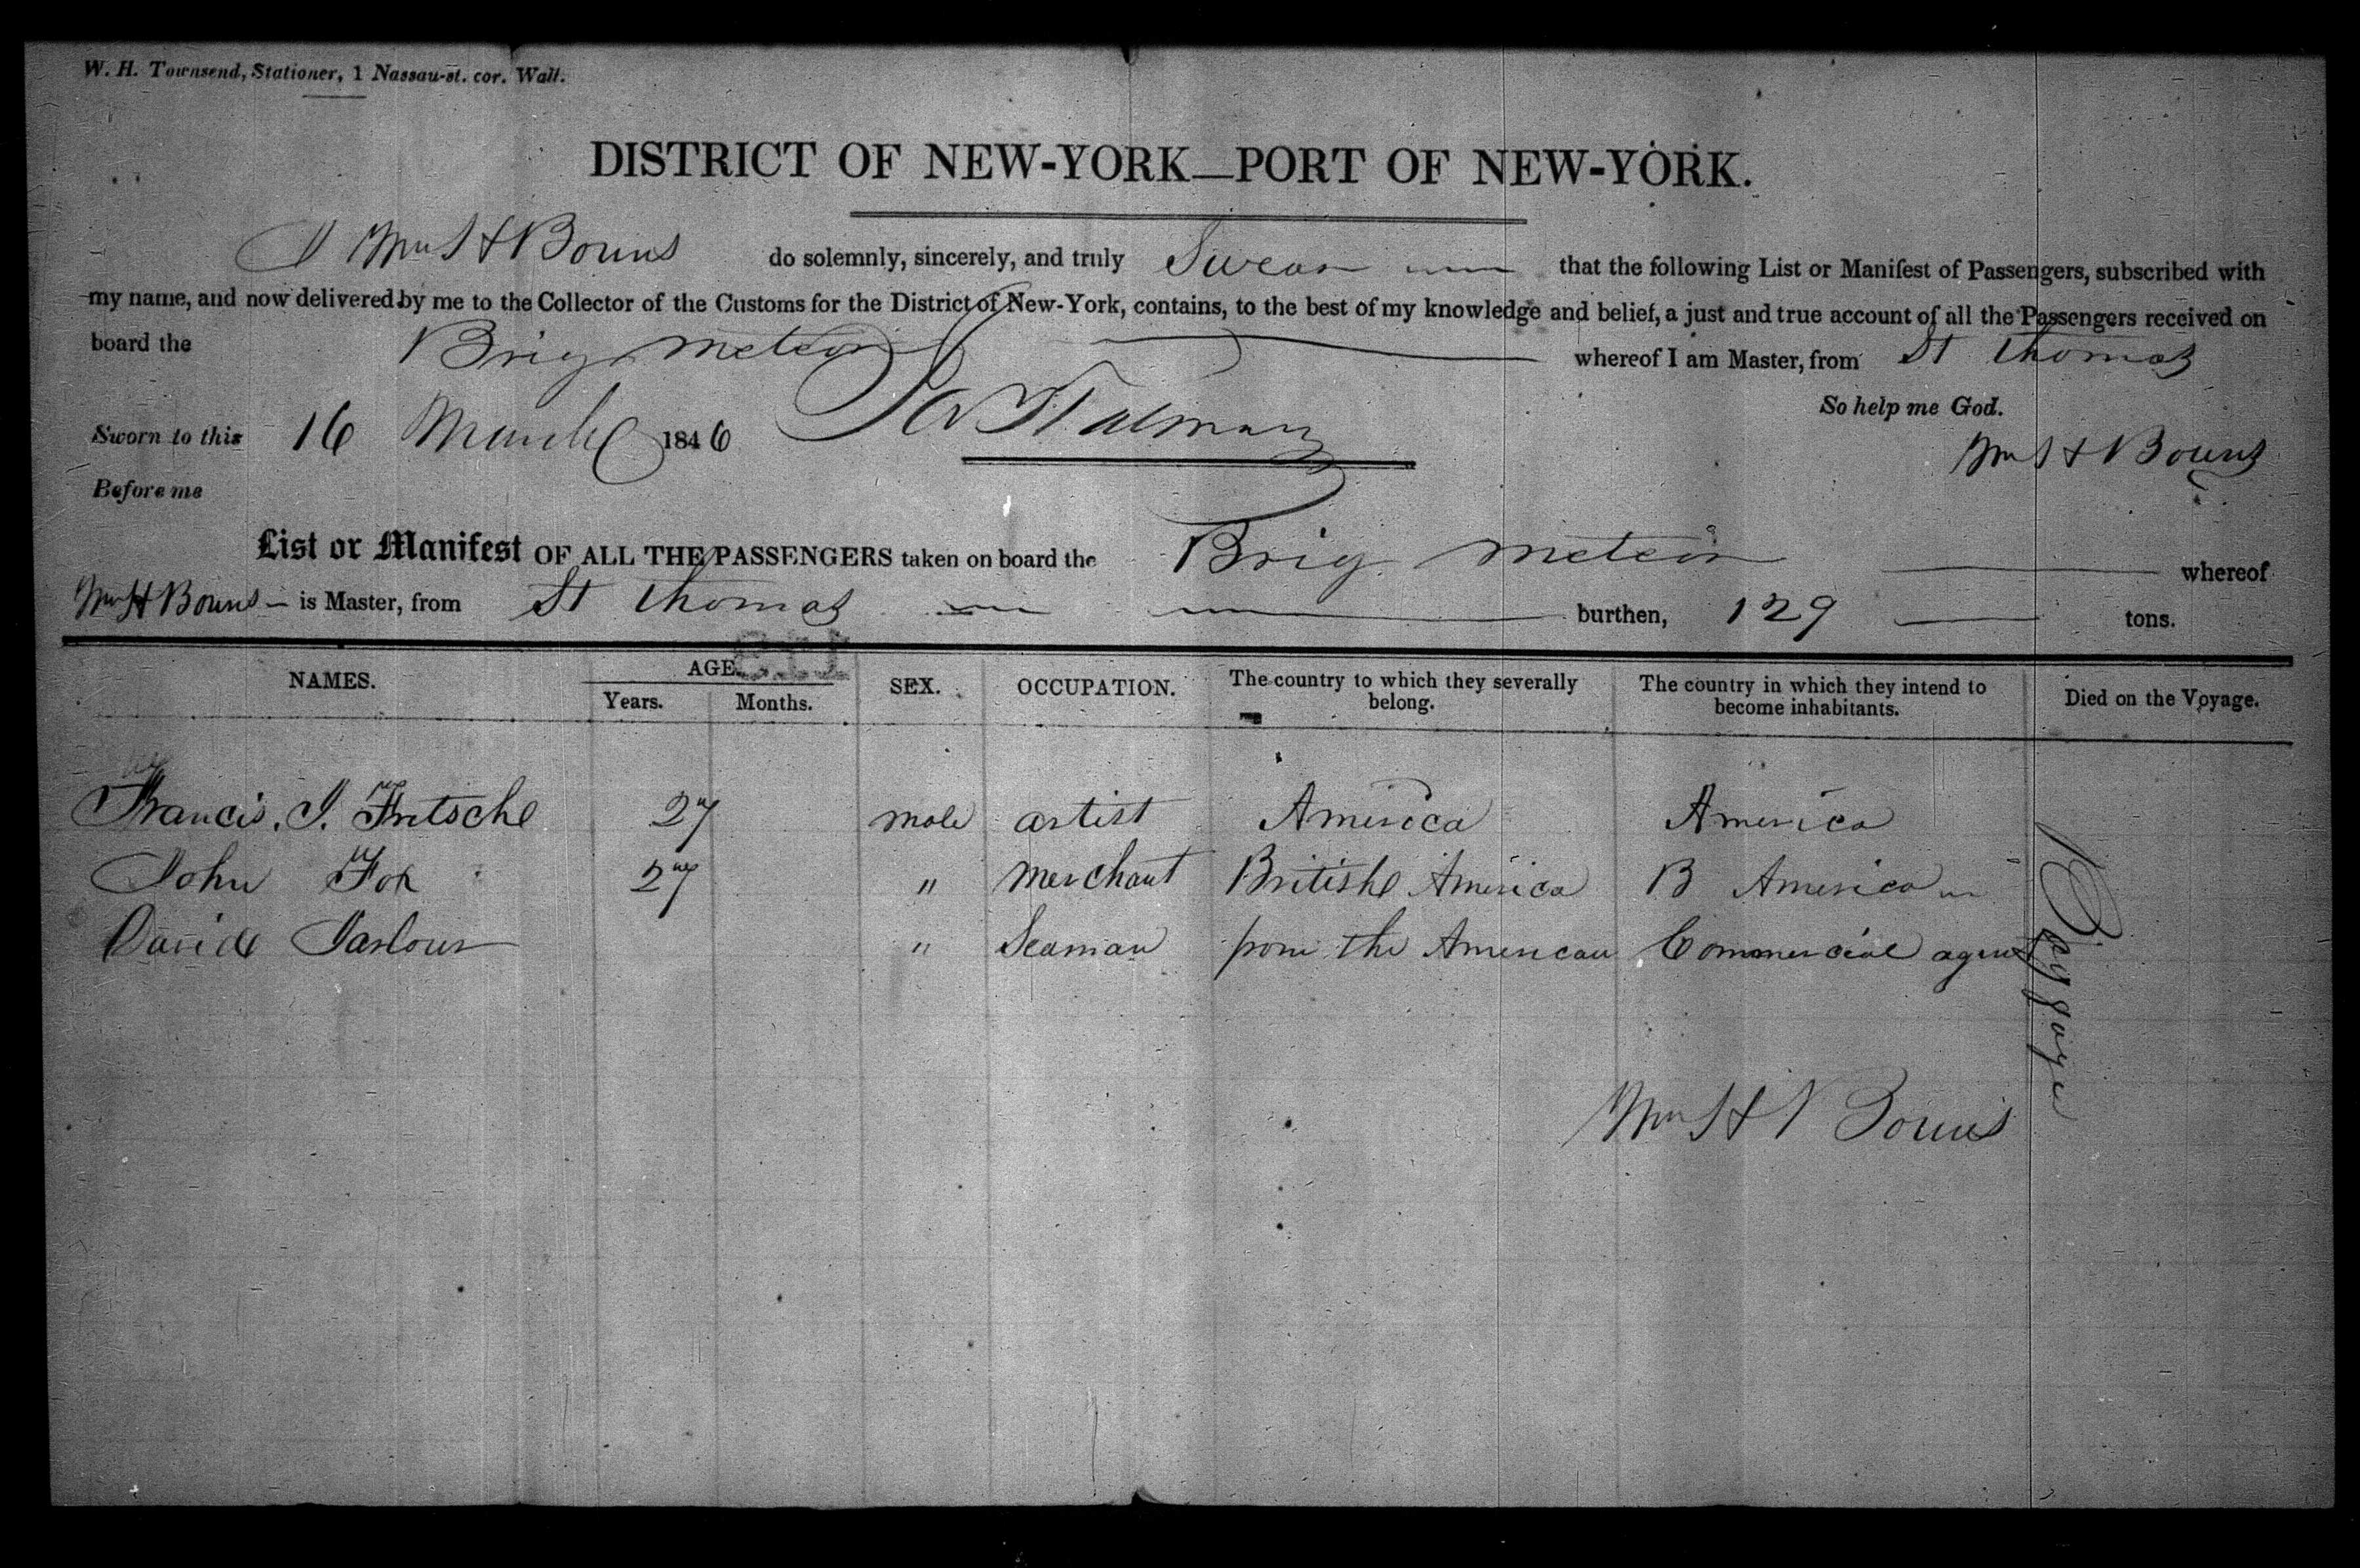 W. H. Townsend, Stationer, 1 Nassau-st. cor. Wall.
DISTRICT OF NEW-YORK—PORT OF NEW-YORK.
I Wm H Bouns do solemnly, sincerely, and truly Swear that the following List or Manifest of Passengers, subscribed with
my name, and now delivered by me to the Collector of the Customs for the District of New-York, contains, to the best of my knowledge and belief, a just and true account of all the Passengers received on
board the Brig Meteor whereof I am Master, from St Thomas
So help me God.
Sworn to this 16 March 1846
Wm H Bouns
Before me
List or Manifest OF ALL THE PASSENGERS taken on board the Brig Meteor whereof
Wm H Bouns is Master, from St Thomas burthen, 129 tons.
NAMES. AGE. SEX. OCCUPATION. The country to which they severally belong. The country in which they intend to become inhabitants. Died on the Voyage.
Years. Months.
Francis. J. Fritsche 27 male artist America America
John Fox 27 " merchant British America B America
David " Seaman from the American Commercial agent
Baggage
Wm H Bouns